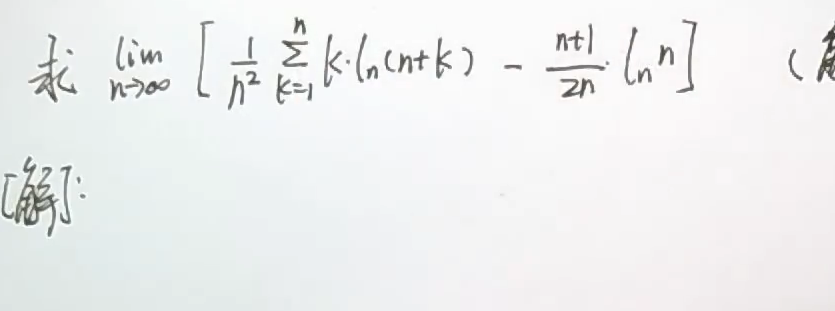 求 lim n→∞ [ 1/n² Σ_{k=1}^{n} k·ln(n+k) - (n+1)/(2n)·ln n ] (
[解]: